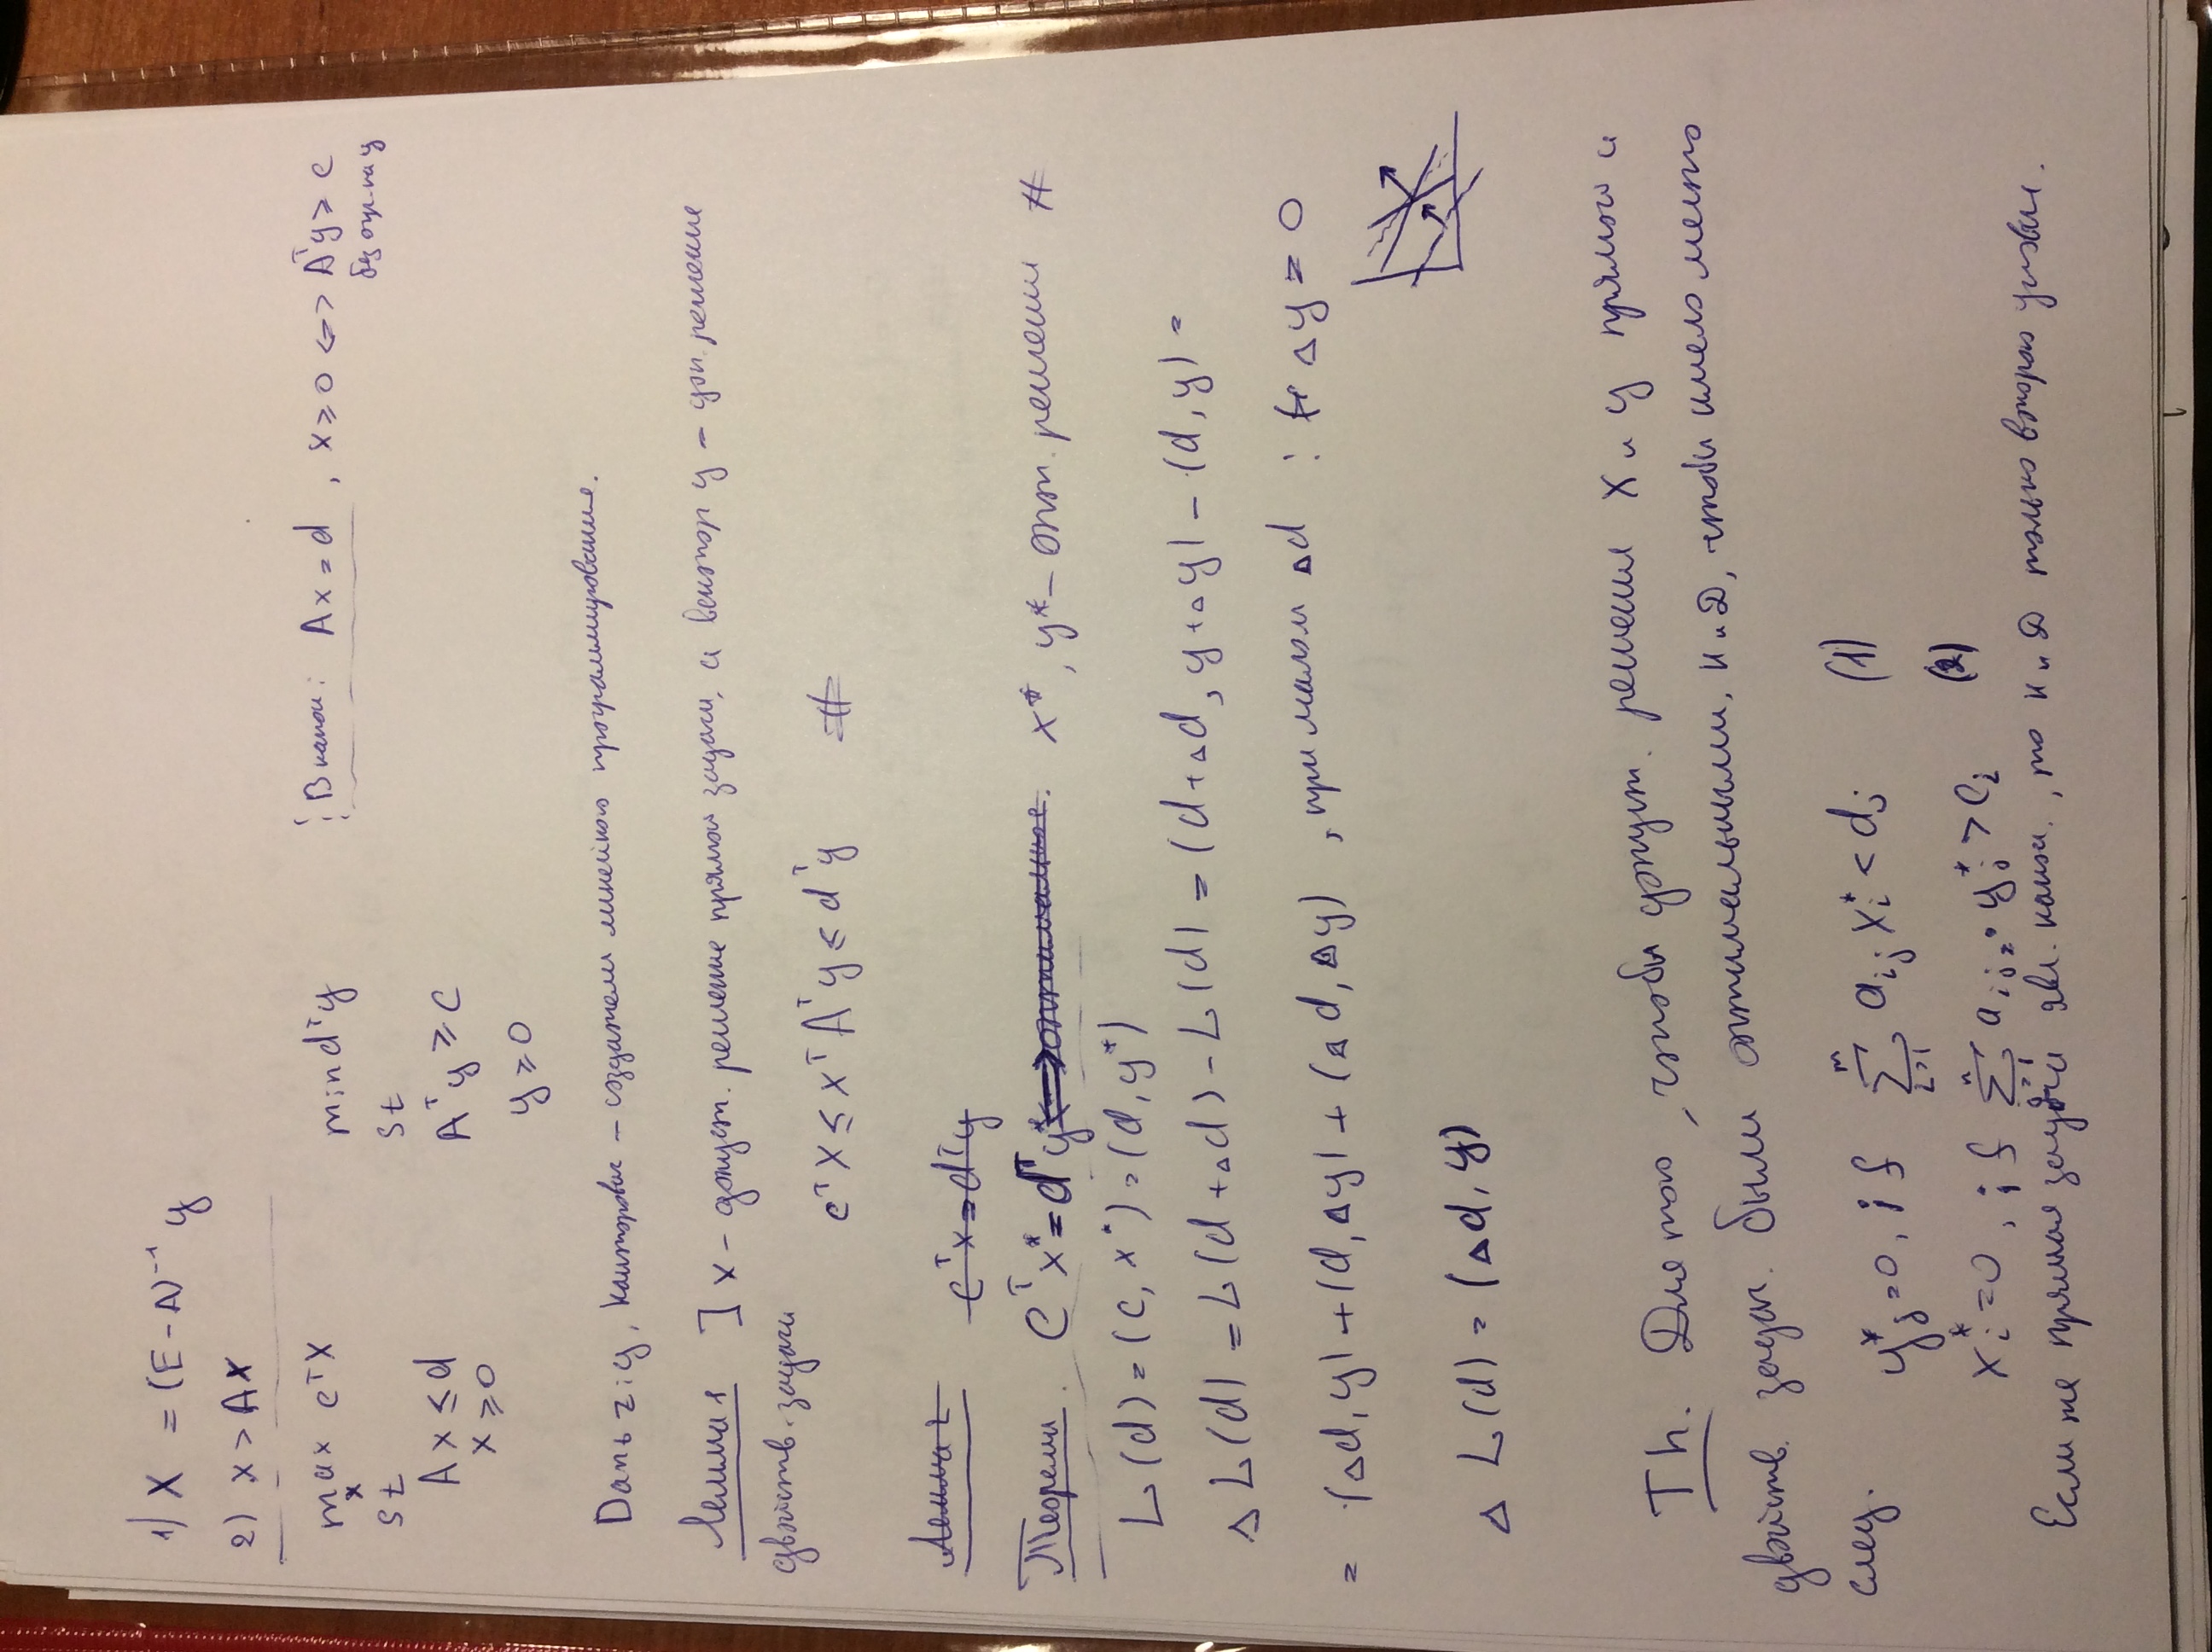 1) X = (E - A)⁻¹ y
2) x > AX
max cᵀX
x
St
Ax ≤ d
x ≥ 0
min dᵀy
St
Aᵀy ≥ c
y ≥ 0
В канон: Ax = d, x ≥ 0 <=> Aᵀy ≥ c
без огр. на y
Dantzig, Канторович – создатели линейного программирования.
Лемма 1 ] x – допуст. решение прямой задачи, а вектор y – доп. решение
двойств. задачи
cᵀX ≤ xᵀAᵀy ≤ dᵀy #
Лемма 2 cᵀx = dᵀy
Теорема. Cᵀx* = dᵀy* <=> оптимальные. x*, y* – опт. решения #
L(d) = (c, x*) = (d, y*)
ΔL(d) = L(d+Δd) - L(d) = (d+Δd, y+Δy) - (d, y) =
= (Δd, y) + (d, Δy) + (Δd, Δy), при малом Δd : Δy = 0
ΔL(d) = (Δd, y)
Th. Для того, чтобы допуст. решения X и y прямой и
двойств. задач. были оптимальными, н и Д, чтобы имело место
след.
y*ⱼ = 0, if Σᵐᵢ₌₁ aᵢⱼ xᵢ* < dⱼ (1)
xᵢ* = 0, if Σⁿⱼ₌₁ aᵢⱼ · yⱼ* > cᵢ (2)
Если же прямая задача явл. канон., то н и Д только второго условия.